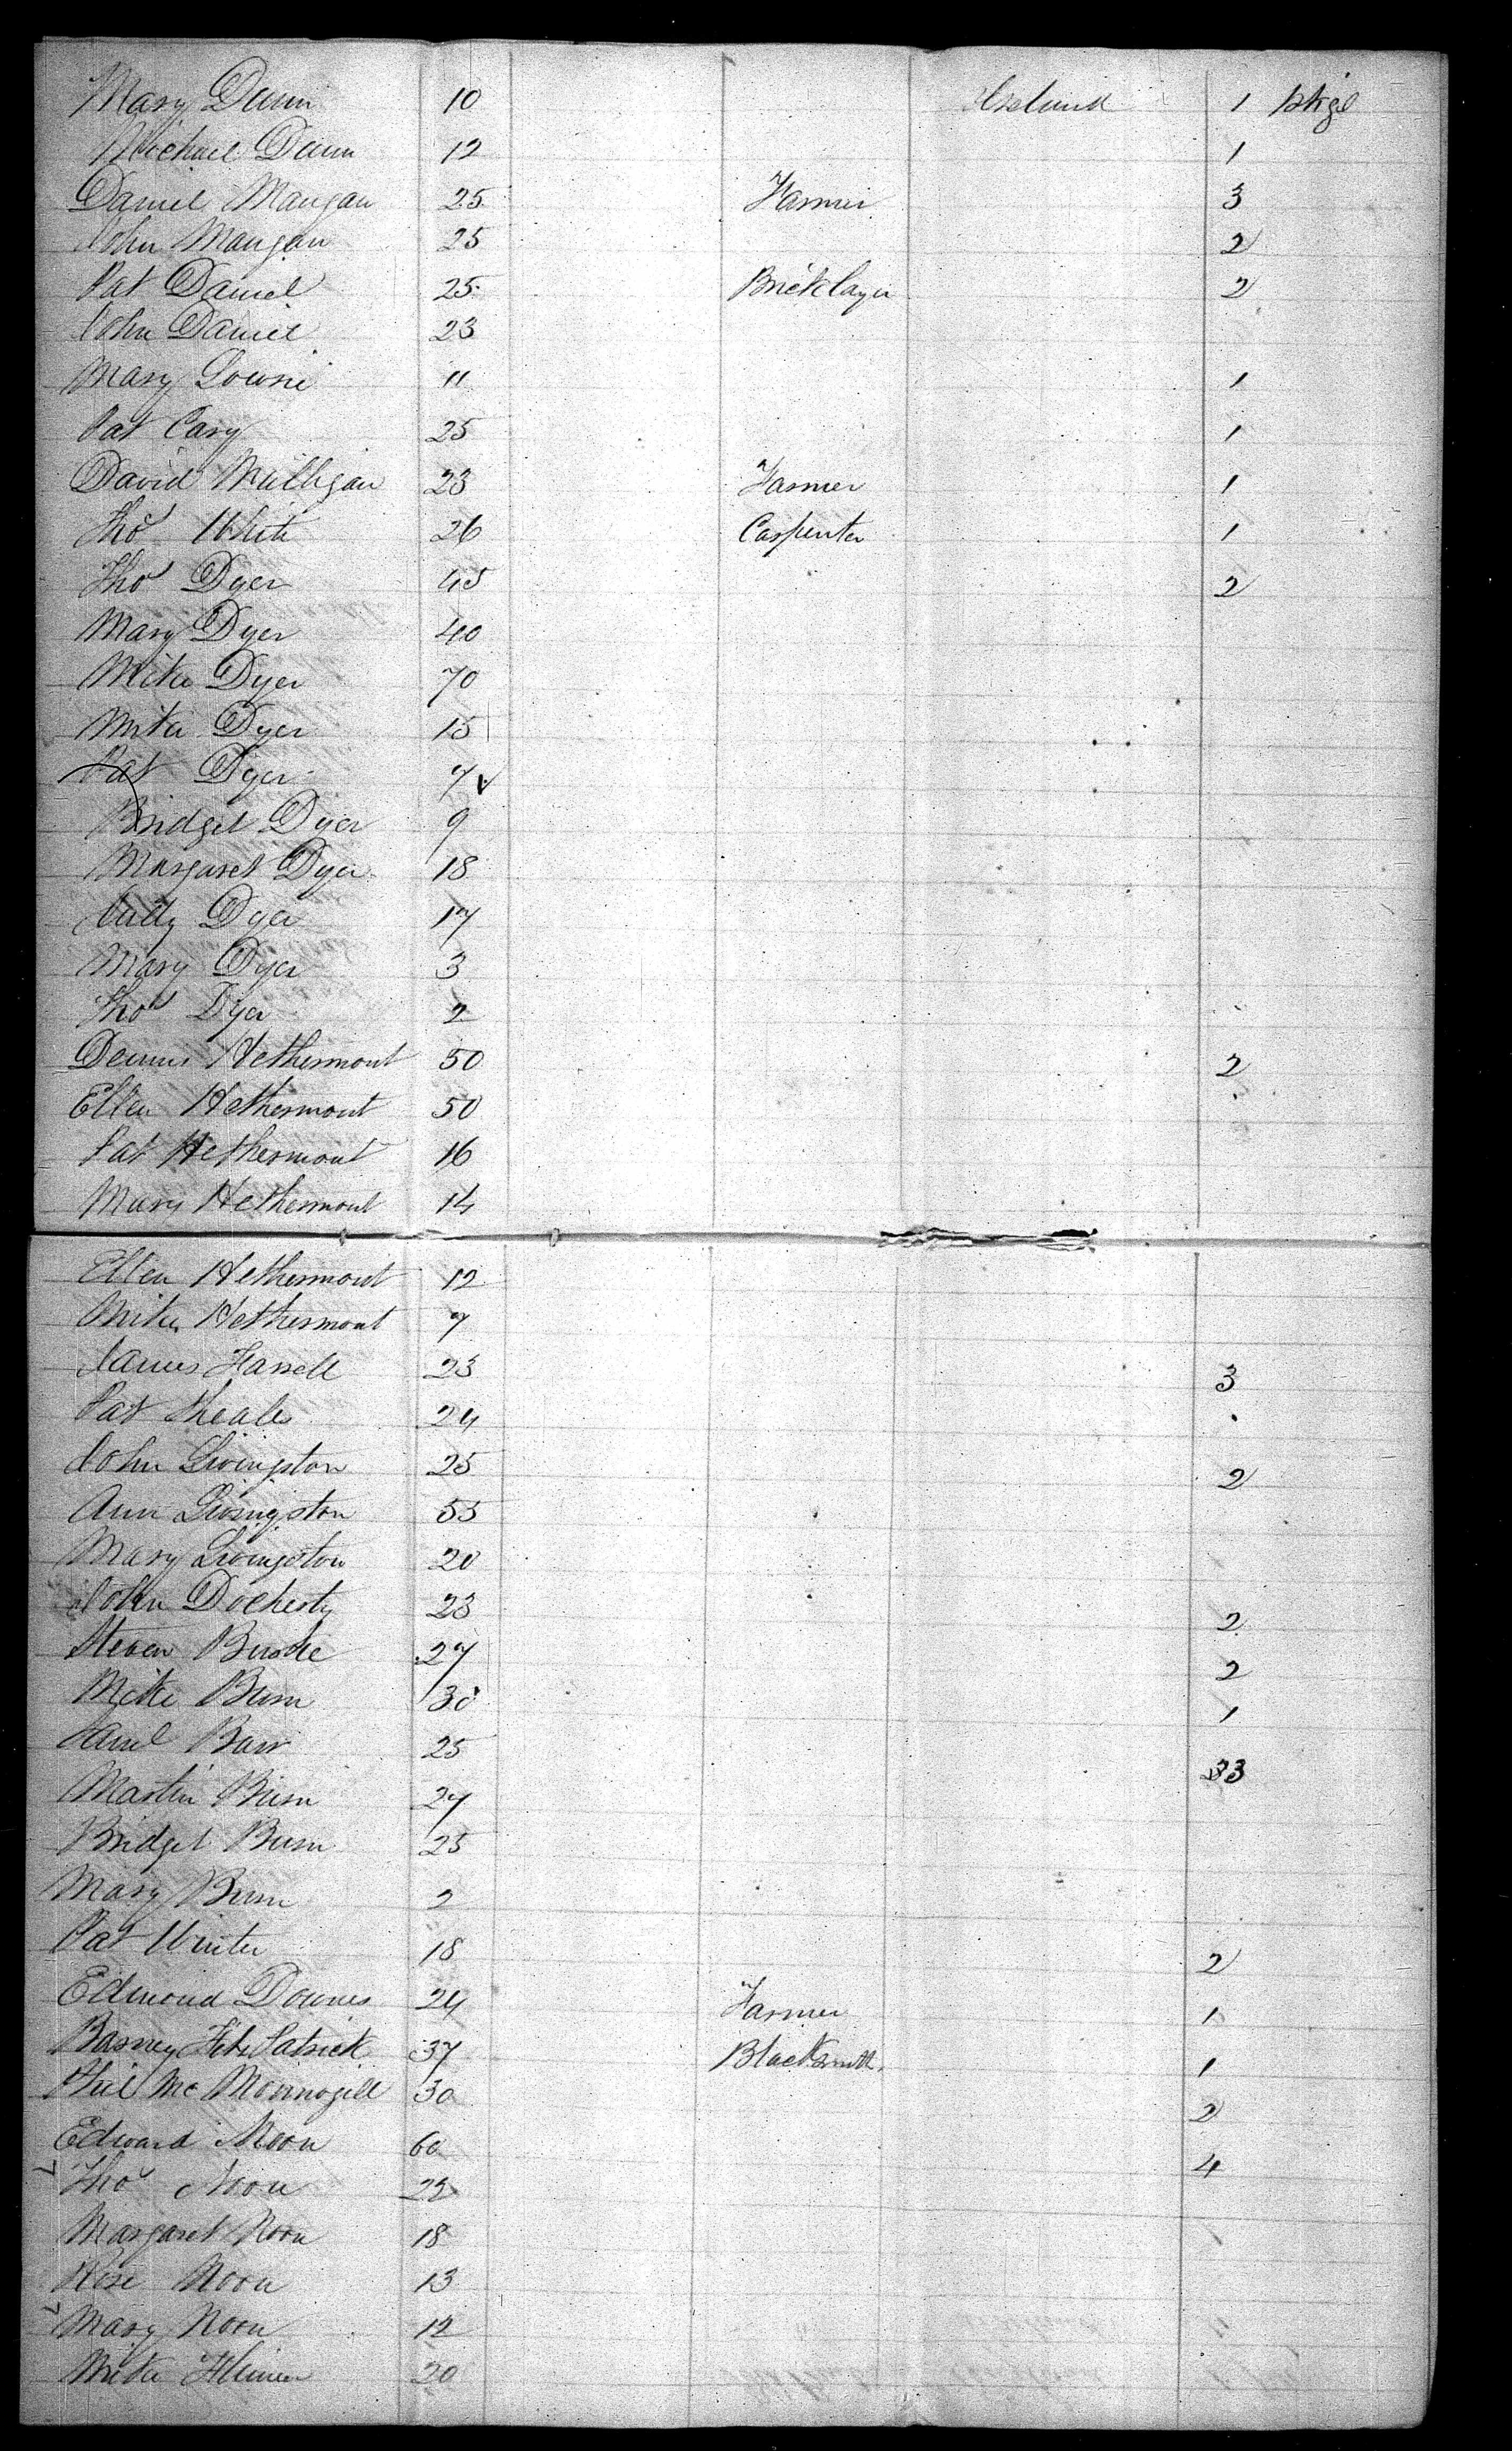 Mary Dunn 10 Ireland 1 pkge
Michael Dunn 12 1
Daniel Mangan 25 Farmer 3
John Mangan 25 2
Pat Daniel 25 Bricklayer 2
John Daniel 23
Mary Downie 11 1
Pat Cary 25 1
David Milligan 23 Farmer 1
Thos White 26 Carpenter 1
Thos Dyer 45 2
Mary Dyer 40
Mike Dyer 70
Mike Dyer 15
Pat Dyer 7
Bridget Dyer 9
Margaret Dyer 18
Dyer 17
Mary Dyer 3
Thos Dyer 2
Dennis Hethermont 50 2
Ellen Hethermont 50
Pat Hethermont 16
Mary Hethermont 14
Ellen Hethermont 12
Mike Hethermont 7
James Farrell 23 3
Pat 24
John Livingston 25 2
Ann Livingston 55
Mary Livingston 20
John Docherty 23 2
Steven Burke 27 2
Mike Burn 30 1
Barr 25 33
Martin Burn 27
Bridget Burn 25
Mary Burn 2
Pat Winter 18 2
Edmond Downes 24 Farmer 1
Barney Fitz Patrick 37 Blacksmith 1
Phil Mc 30 2
Edward Noon 60 4
Thos Noon 22
Margaret Noon 18
Rose Noon 13
Mary Noon 12
Mike 20